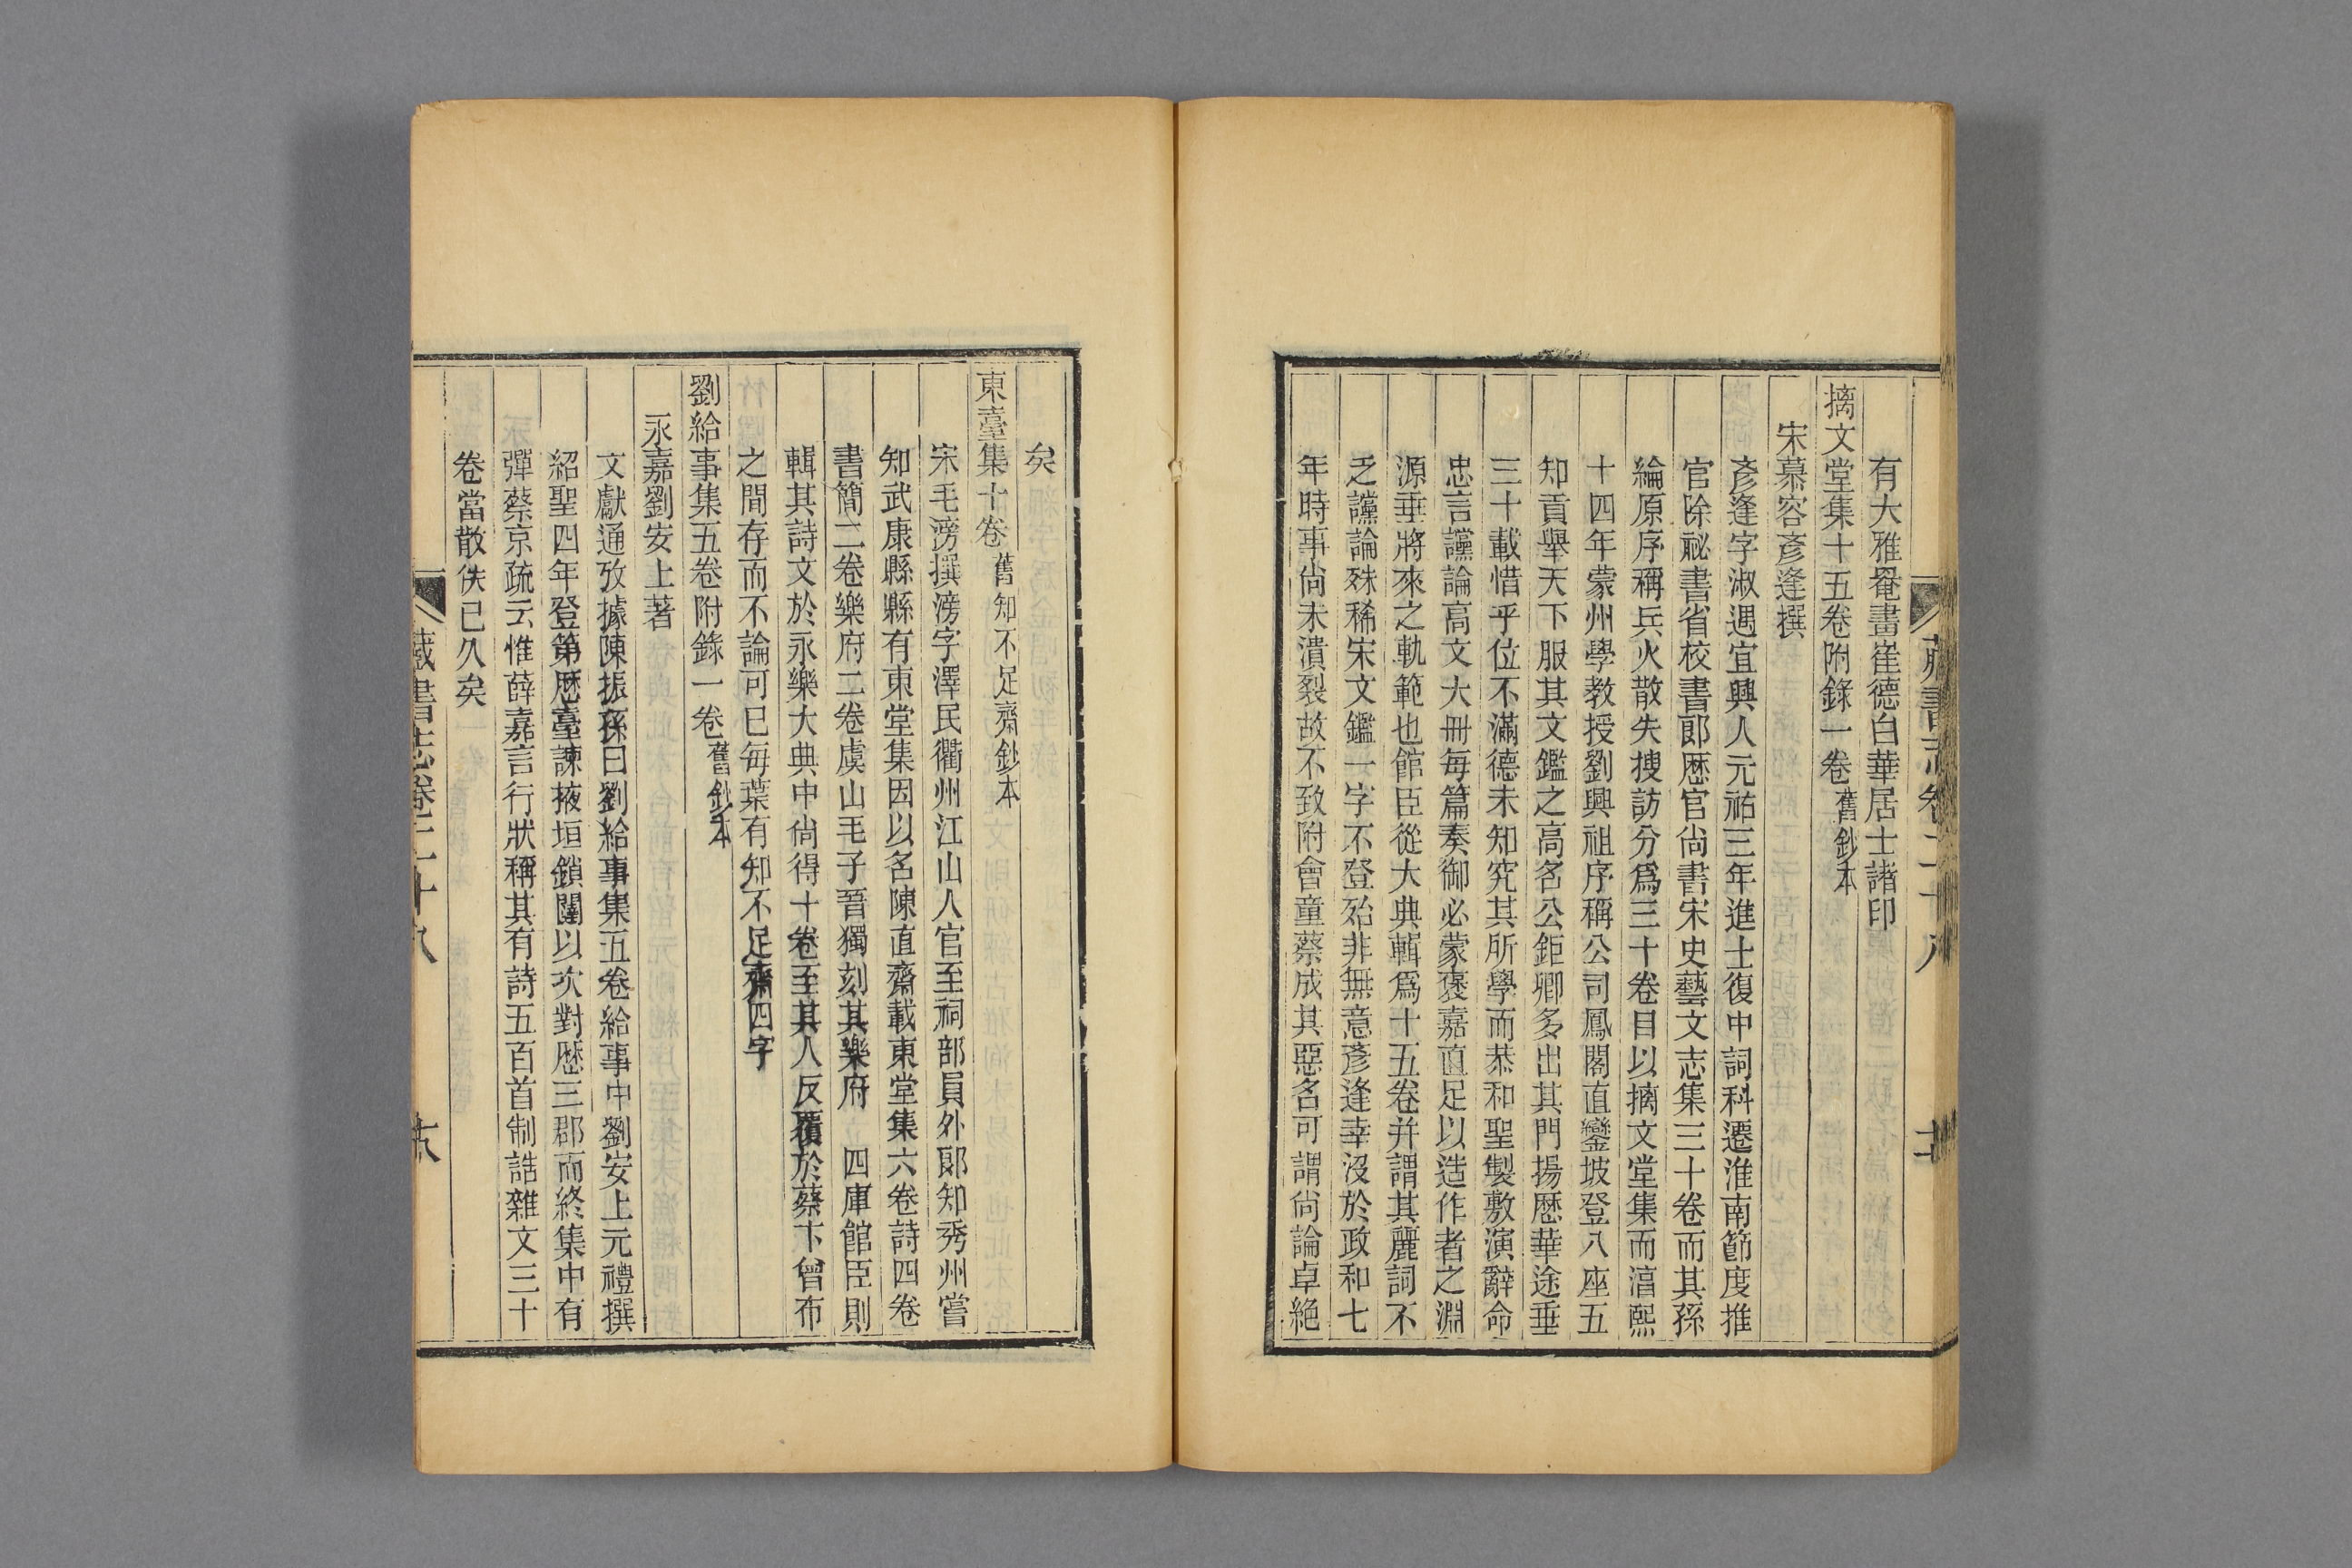 有大雅罨畫崔德白華居士諸印
摛文堂集十五卷附錄一卷舊鈔本
宋慕容彥逢撰
彥逢字淑遇宜興人元祐三年進士復中詞科遷淮南節度推
官除祕書省校書郎歷官尚書宋史藝文志集三十卷而其孫
綸原序稱兵火散失搜訪分爲三十卷目以摛文堂集而湻熙
十四年蒙州學教授劉興祖序稱公司鳳閣直鑾坡登八座五
知貢舉天下服其文鑑之高名公鉅卿多出其門揚歷華途垂
三十載惜乎位不滿德未知究其所學而恭和聖製敷演辭命
忠言讜論高文大冊每篇奏御必蒙褒嘉直足以造作者之淵
源垂將來之軌範也館臣從大典輯爲十五卷并謂其麗詞不
乏讜論殊稀宋文鑑一字不登殆非無意彥逢幸沒於政和七
年時事尚未潰裂故不致附會童蔡成其惡名可謂尚論卓絕
藏書志卷二十八
矣
東臺集十卷舊知不足齋鈔本
宋毛滂撰滂字澤民衢州江山人官至祠部員外郎知秀州嘗
知武康縣縣有東堂集因以名陳直齋載東堂集六卷詩四卷
書簡二卷樂府二卷虞山毛子晉獨刻其樂府 四庫館臣則
輯其詩文於永樂大典中尚得十卷至其人反覆於蔡卞曾布
之間存而不論可已每葉有知不足齋四字
劉給事集五卷附錄一卷舊鈔本
永嘉劉安上著
文獻通攷據陳振孫曰劉給事集五卷給事中劉安上元禮撰
紹聖四年登第歷臺諫掖垣鎖闥以次對歷三郡而終集中有
彈蔡京疏云惟薛嘉言行狀稱其有詩五百首制誥雜文三十
卷當散佚已久矣
藏書志卷二十八